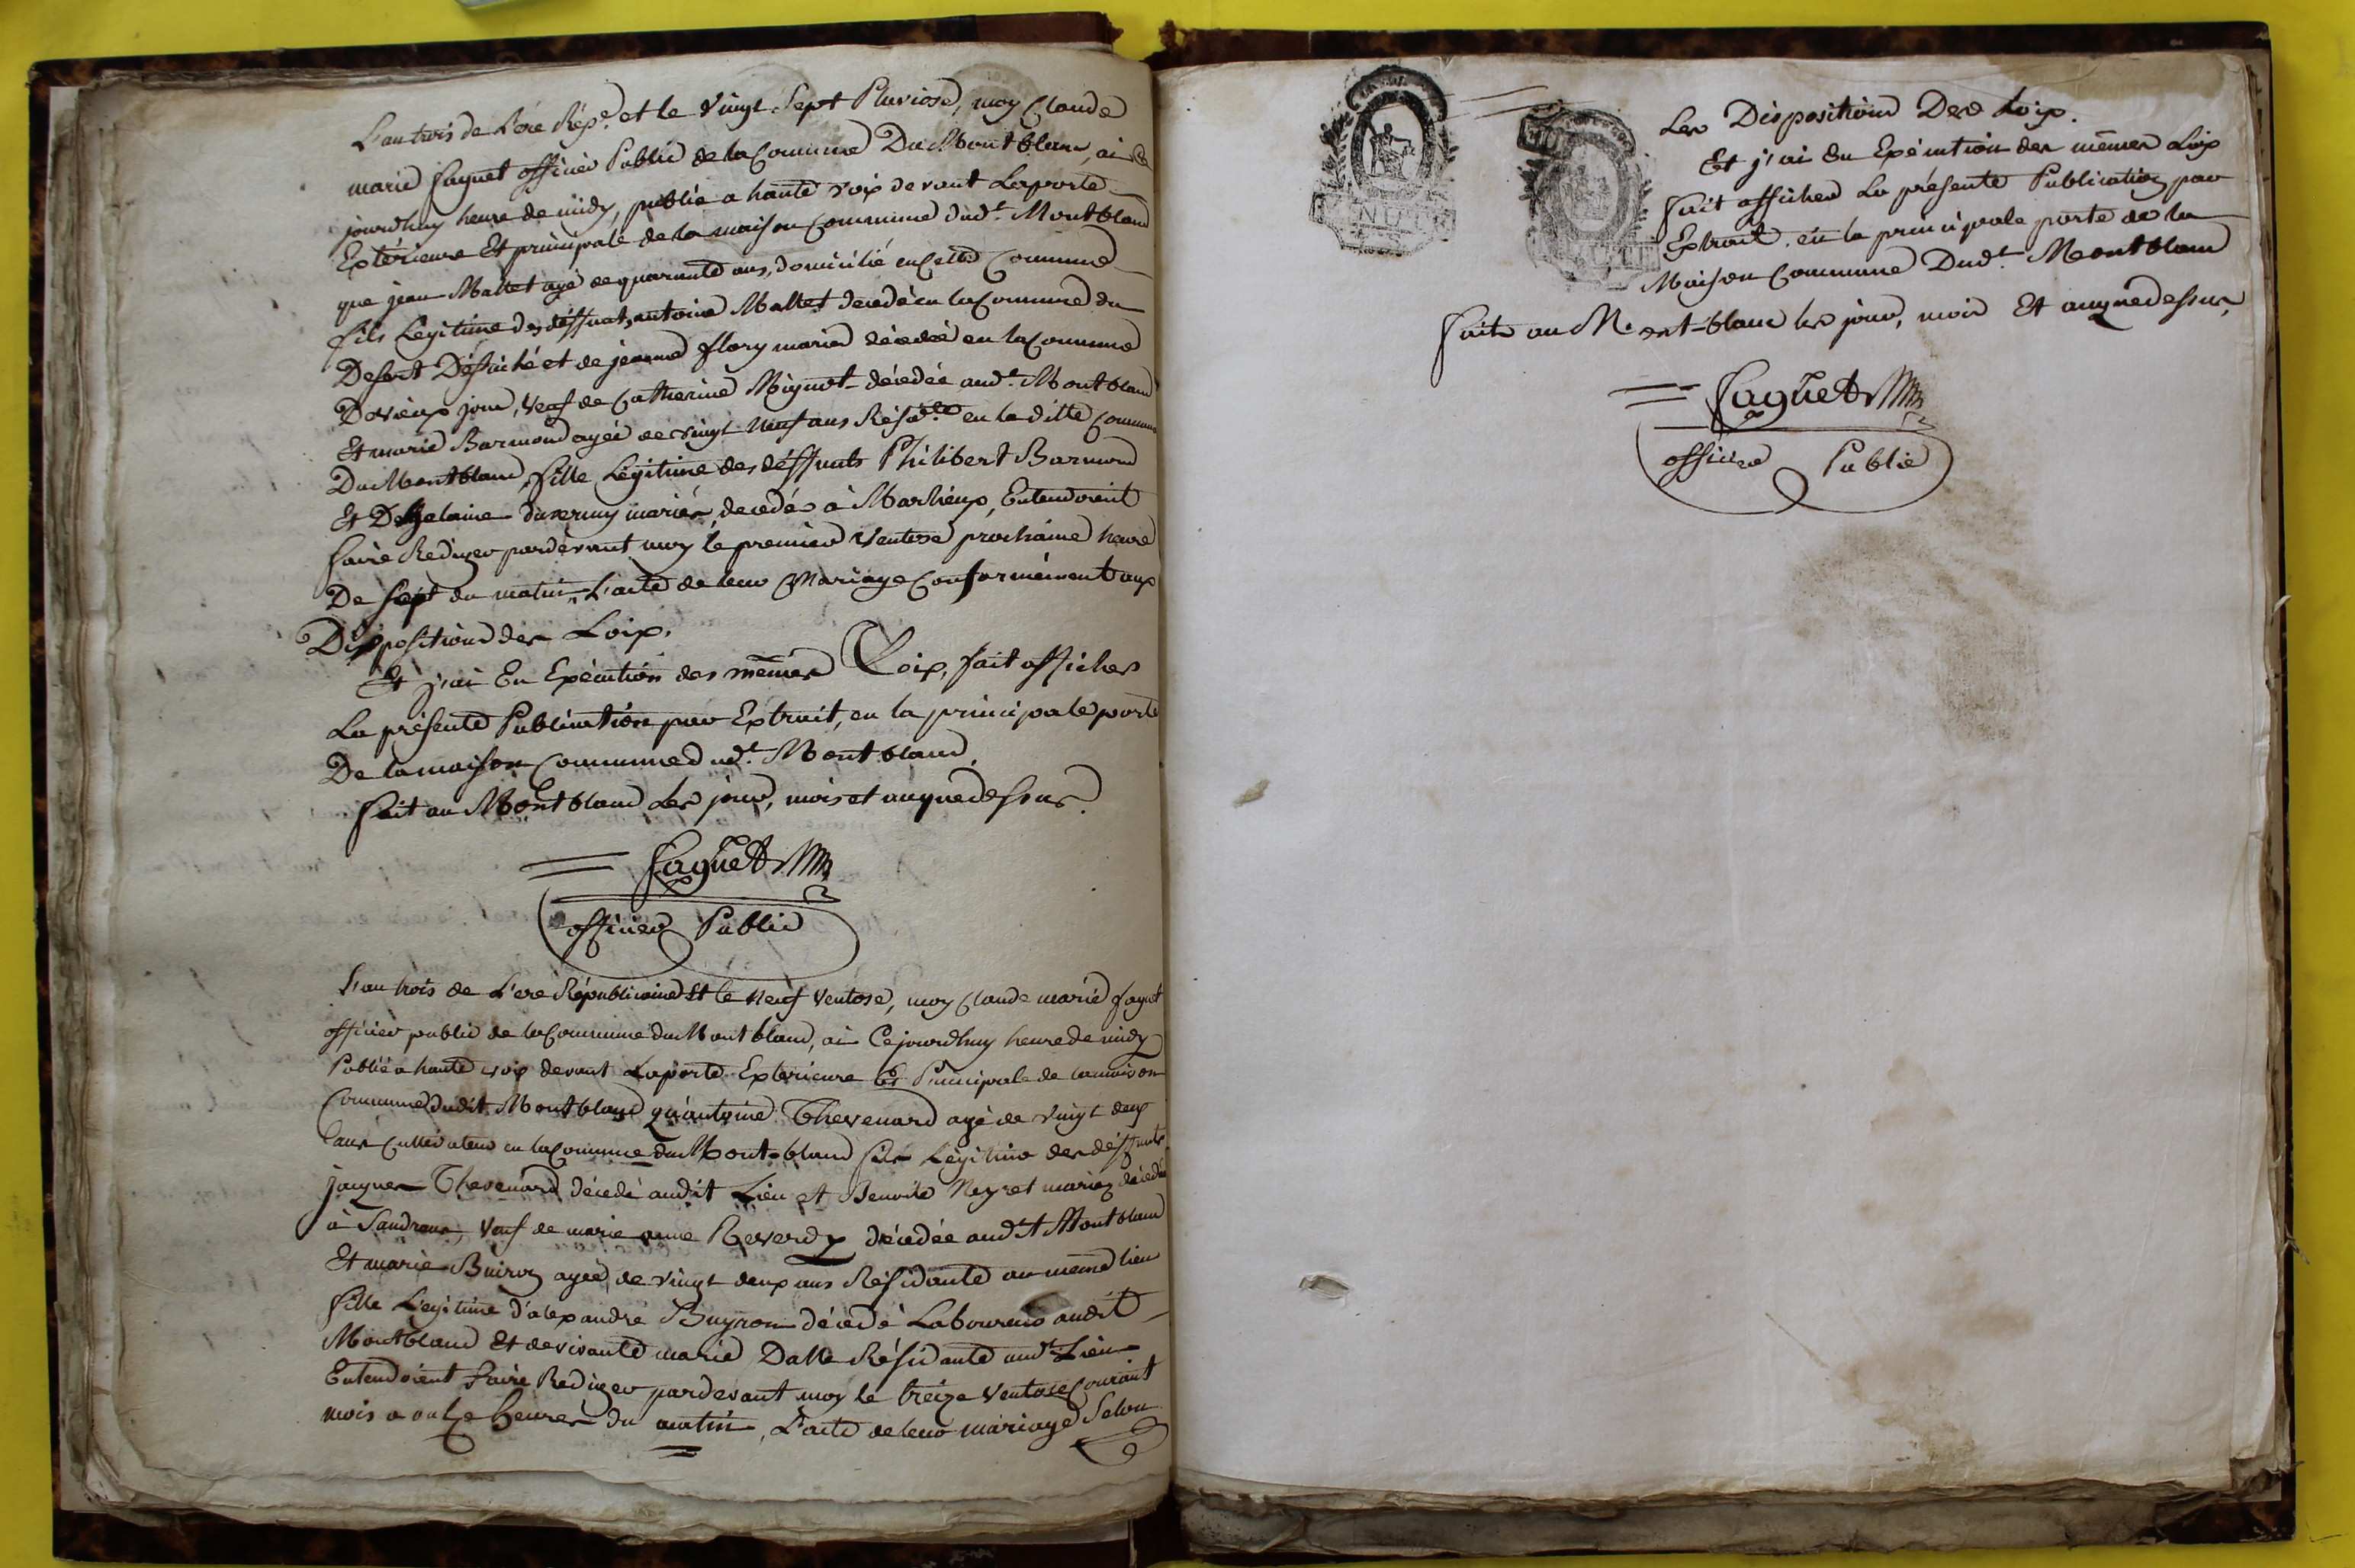 L'an trois de l'ère Répe. et le vingt Sept Pluviose, moy Claude
marie faguet officier Public de la Commune Du Montblanc, ai ce
jourd'huy heure de midy, publié a haute voix devant la porte
Extérieure Et principale de la maison Commune dudt. Montblanc
que jean Mallet agé de quarante ans, domicilié en Cette Commune
fils Légitime des déffunts, antoine Mallet decedé en la Commune du
Desert Défriché et de jeanne flory mariés décédée en la Commune
De vieux jour, veuf de Catherine Mignot décedée audt. Montblanc
Et marie Barmond agée de vingt Neuf ans Résidte. en la ditte Commune
Du Montblanc, fille Légitime des déffunts Philibert Barmond
Et De helaine duvernay mariés, decedés à Marlieux, Entendoient
faire Rediger pardevant moy le premier Ventose prochaine heure
De Sept du matin, L'acte de leur Mariage Conformément aux
Dispositions des Loix.
Et j'ai En Exécution des mêmes Loix, fait afficher
La présente Publication par Extrait, en la principale porte
De la maison Commune dudt. Montblanc.
fait au Montblanc Les jour, mois et an que dessus.
faguet
officier Public
L'an trois de L'ere Républicaine Et le Neuf Ventose, moy Claude marie faguet
officier public de la Commune du Montblanc, ai Cejourdhuy heure de midy
Publié a haute voix devant La porte Extérieure Et Principale de la maison
Commune dudit Montblanc qu'antoine Thevenard agé de vingt deux
ans Cultivateur en la Commune du Montblanc fils Légitime des déffunts
jacques Thevenard décedé audit Lieu et Benoite Neyret mariés décedée
à Sandrans, Veuf de marie anne Reverdy décedée audt Montblanc
Et marie Buiron agée de vingt deux ans Résidante au meme lieu
fille Légitime d'alexandre Buyron décedé Laboureur audit
Montblanc Et de vivante marie Dalle Résidante audt. Lieu
Entendoient faire Rediger pardevant moy le treize Ventose Courant
mois a onze heures du matin, L'acte de leur mariage Selon
Les Dispositions Des Loix.
Et j'ai En Exécution des mêmes Loix
fait afficher La présente Publication par
Extrait, en la principale porte de la
Maison Commune Dudt. Montblanc
faite au Mont-blanc les jour, mois Et an que dessus,
faguet
officier Public